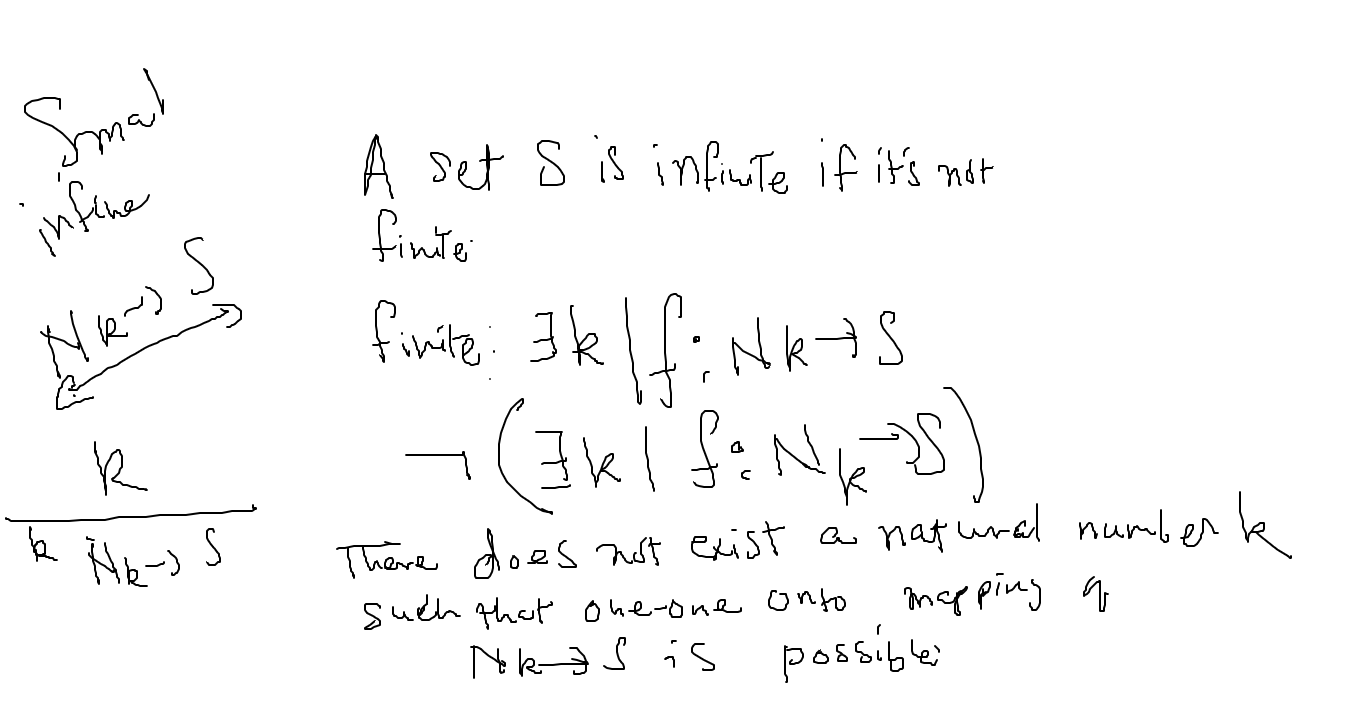 Smal
infine
Nk→S
k
k Nk→S
A set S is infinite if it's not
finite.
finite: ∃k | f: Nk→S
¬(∃k | f: Nk→S)
There does not exist a natural number k
such that one-one onto mapping of
Nk→S is possible